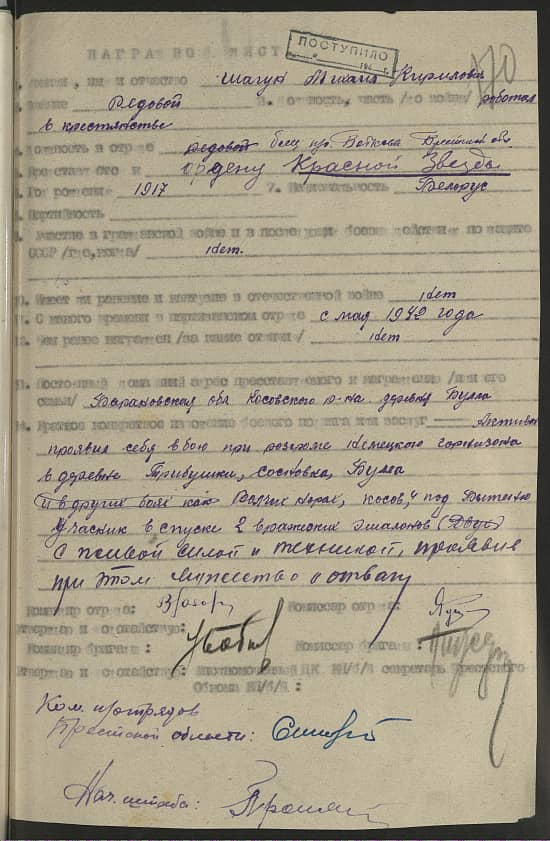 НАГРАДНОЙ ЛИСТ
ПОСТУПИЛО
194 г.
имя и отчество Шагун Кирилович
Рядовой должность, часть /до войны/ работал
в крестьянстве
4. Должность в отряде рядовой боец Брестской обл.
Представляется к ордену Красной Звезды
6. Год рождения 1917 7. Национальность Белорус
8. Партийность
9. Участие в гражданской войне и в последующих боевых действиях по защите
СССР /где, когда/ нет.
10. Имеет ли ранение и контузию в отечественной войне нет
11. С какого времени в партизанском отряде с мая 1942 года
12. Чем ранее награжден /за какие отличия/ нет
13. Постоянный домашний адрес представляемого к награждению /или его
семьи/ Барановская обл Косовского р-на деревня Булла
14. Краткое конкретное изложение боевого подвига или заслуг Активно
проявил себя в бою при розгроме немецкого горнизона
в деревне Трибушки, Сосновка, Булла
и в других боях как горах, Косов, и под Вытенью
Учасник в спуске 2 вражеских эшалонов (Двух)
с живой силой и техникой, проявив
при этом мужество и отвагу
Командир отряда: Комиссар отряда:
Утверждаю и ходатайствую:
Командир бригады: Комиссар бригады:
Утверждаю и ходатайствую: Уполномоченный ЦК КП/б/Б секретарь Брестского
Обкома КП/б/Б:
Ком. партотрядов
Брестской области:
Нач. штаба: